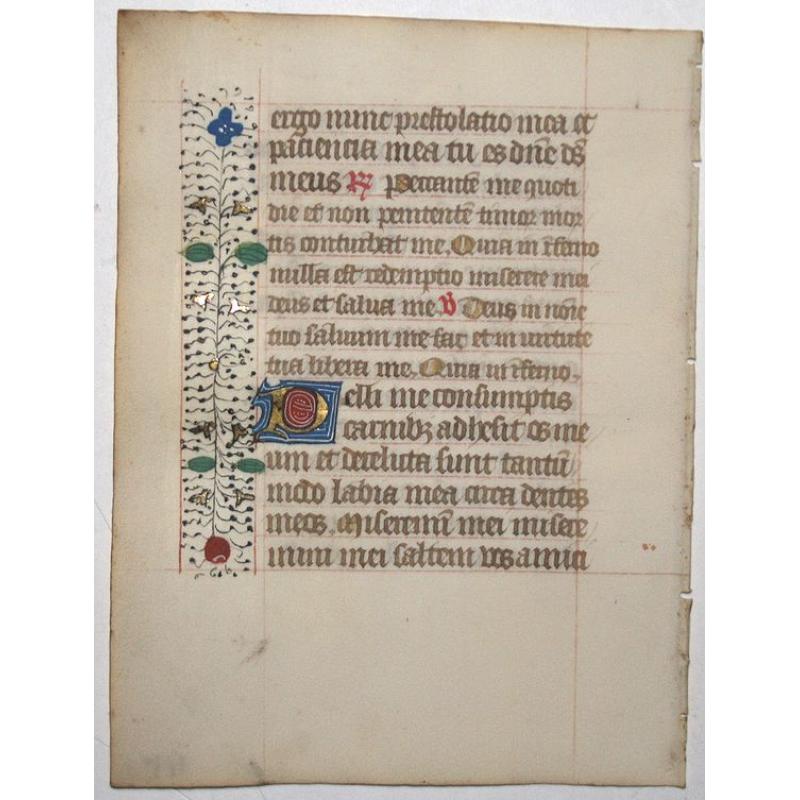 ergo nunc prestolatio mea et
paciencia mea tu es dñe ds
meus ℟ Peccantē me quoti
die et non penitentē timor mor
tis conturbat me. Quia in īferno
nulla est redemptio miserere mei
deus et salua me ℣ Deus in noīe
tuo saluum me fac et in uirtute
tua libera me. Quia in īferno.
Pelli me consumptis
carnibꝫ adhesit os me
um et derelicta sunt tantū
modo labia mea circa dentes
meos. Miseremī mei misere
mini mei saltem uos amici